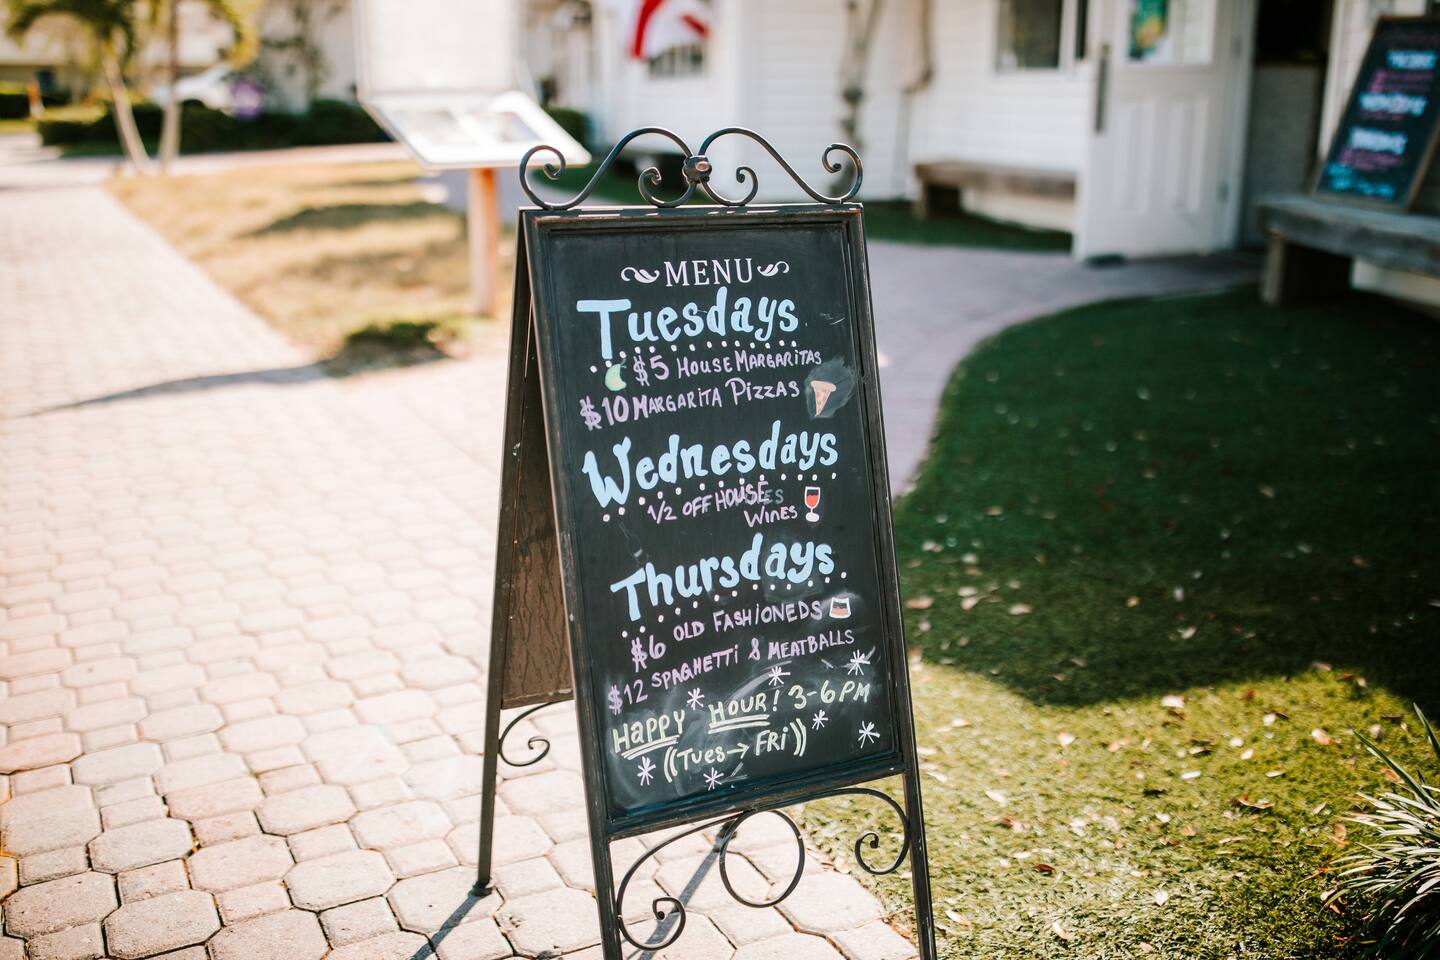 MENU
Tuesdays
$5 HOUSE MARGARITAS
$10 MARGARITA PIZZAS
Wednesdays
1/2 OFF HOUSE
WINES
Thursdays
$6 OLD FASHIONEDS
$12 SPAGHETTI & MEATBALLS
HAPPY HOUR! 3-6PM
((TUES→FRI))